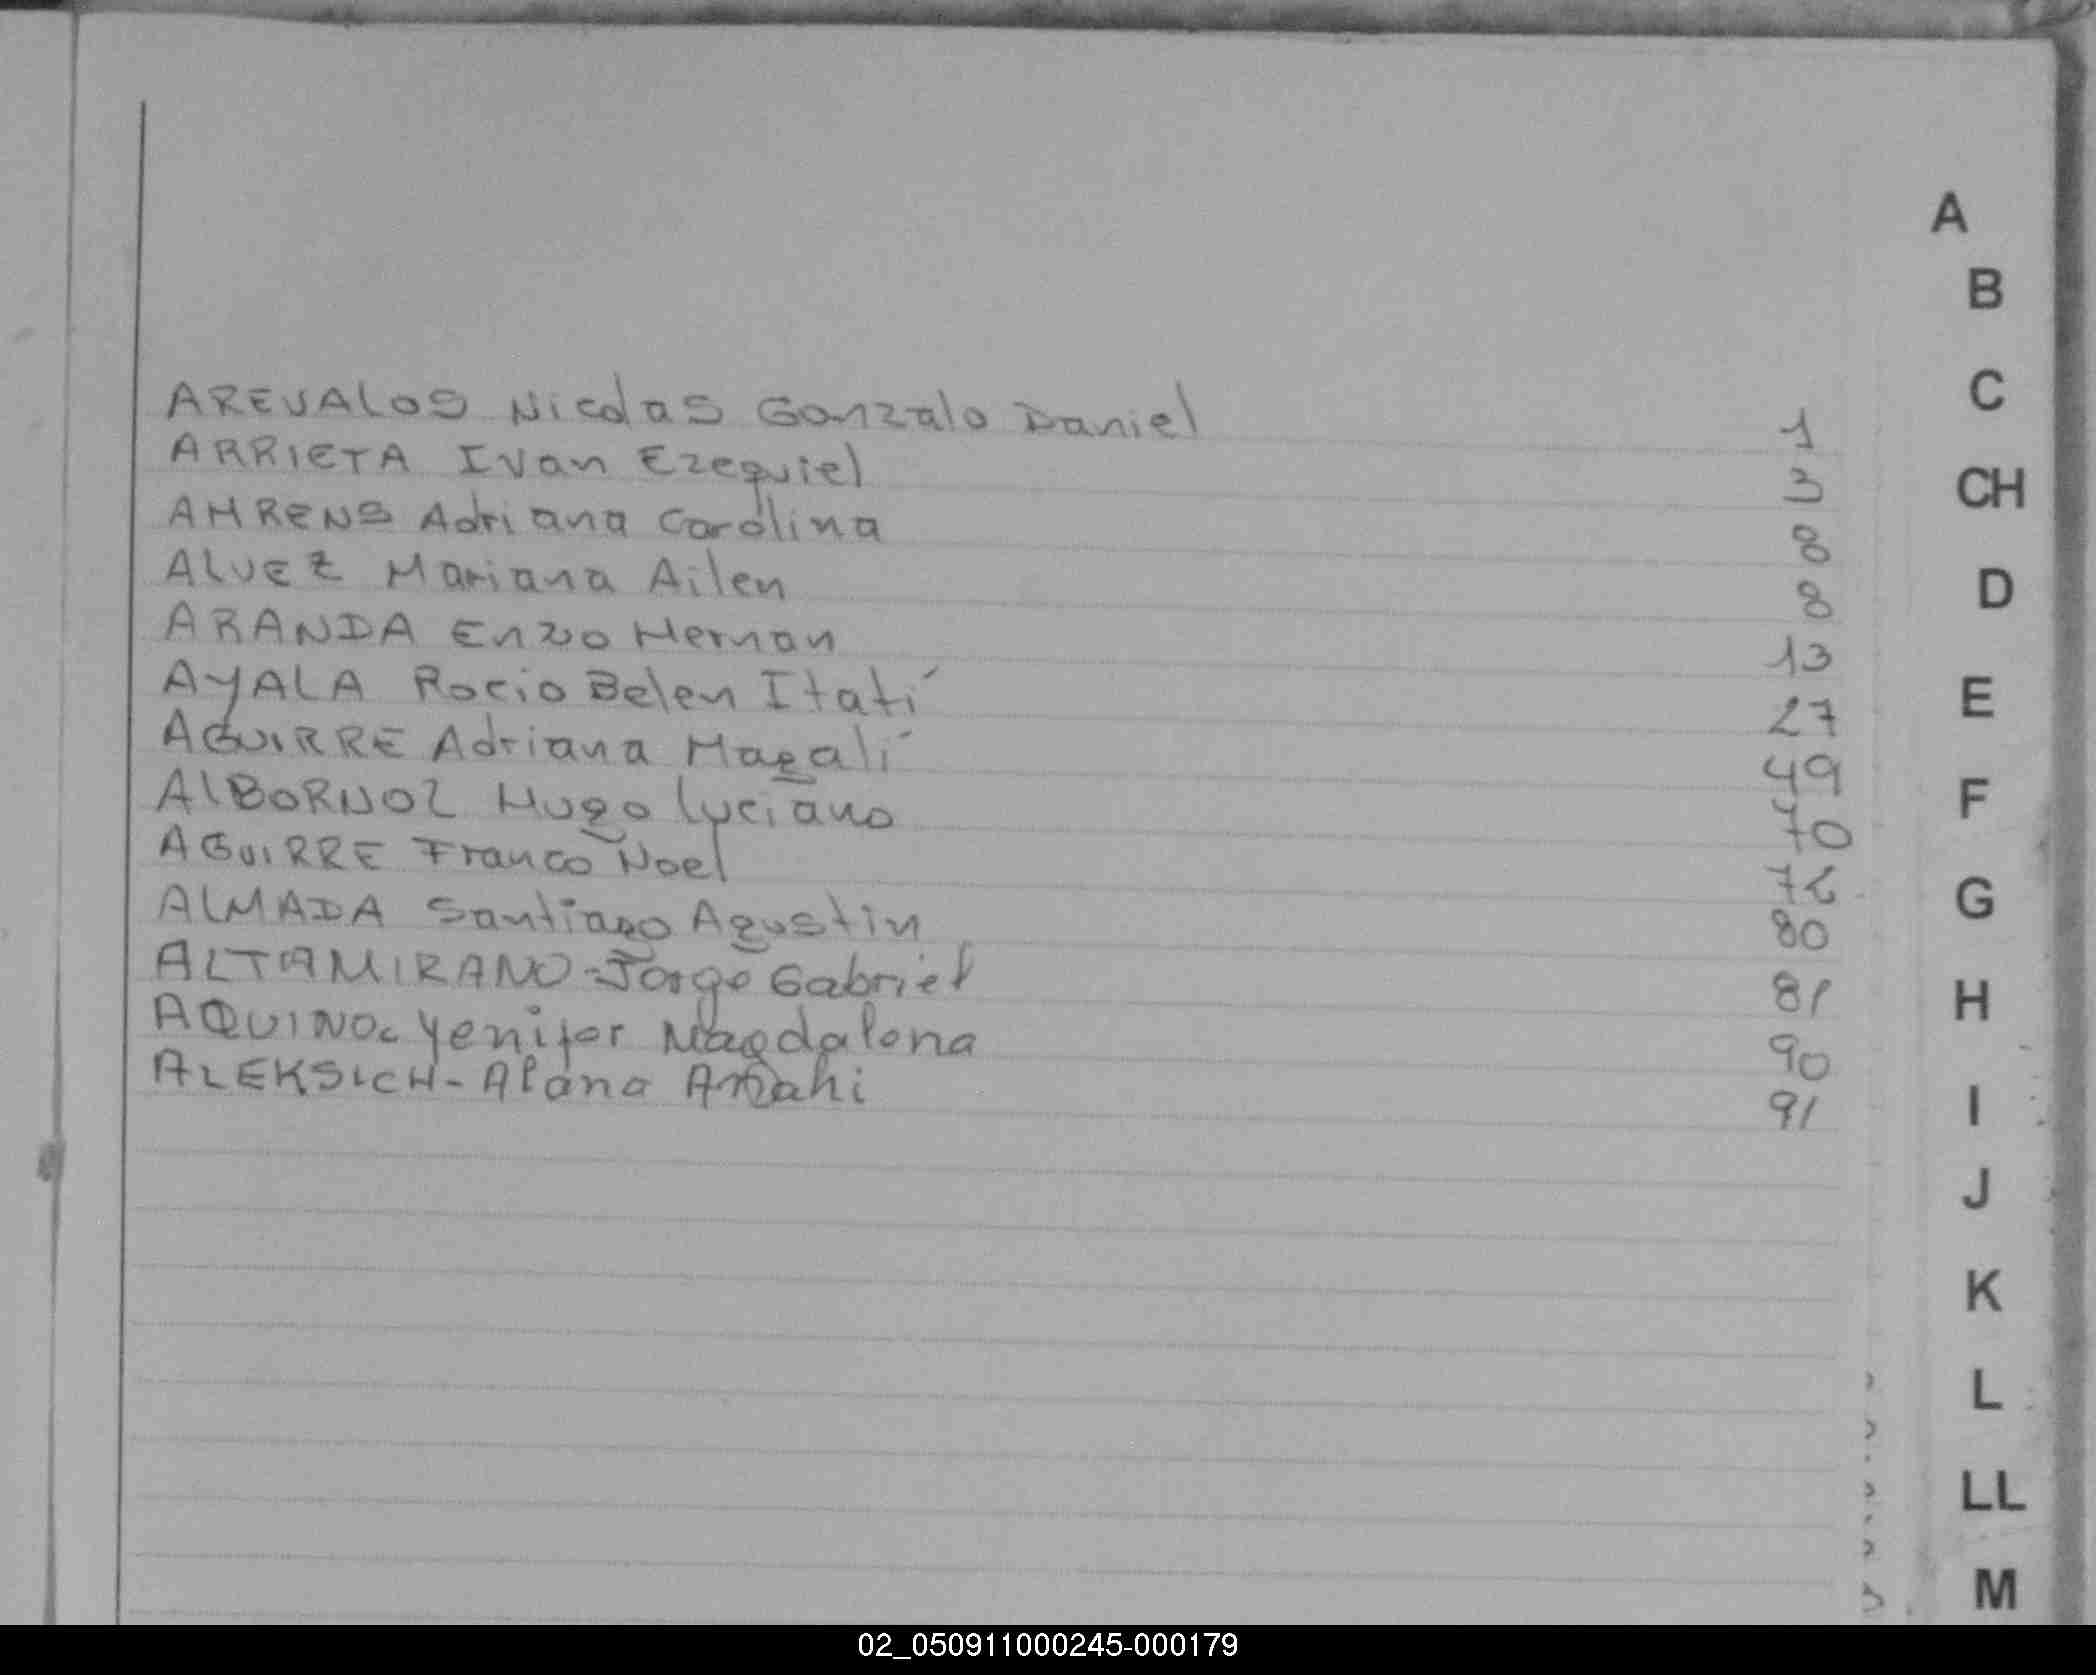 AREVALOS Nicolas Gonzalo Daniel 1
ARRIETA Ivan Ezequiel 3
AHRENS Adriana Carolina 8
ALVEZ Mariana Ailen 8
ARANDA Enzo Hernan 13
AYALA Rocio Belen Itatí 27
AGUIRRE Adriana Magalí 49
ALBORNOZ Hugo Luciano 70
AGUIRRE Franco Noel 72
ALMADA Santiago Agustin 80
ALTAMIRANO-Jorge Gabriel 81
AQUINO- Yenifer Magdalena 90
ALEKSICH- Alana Anahi 91
A
B
C
CH
D
E
F
G
H
I
J
K
L
LL
M
02_050911000245-000179